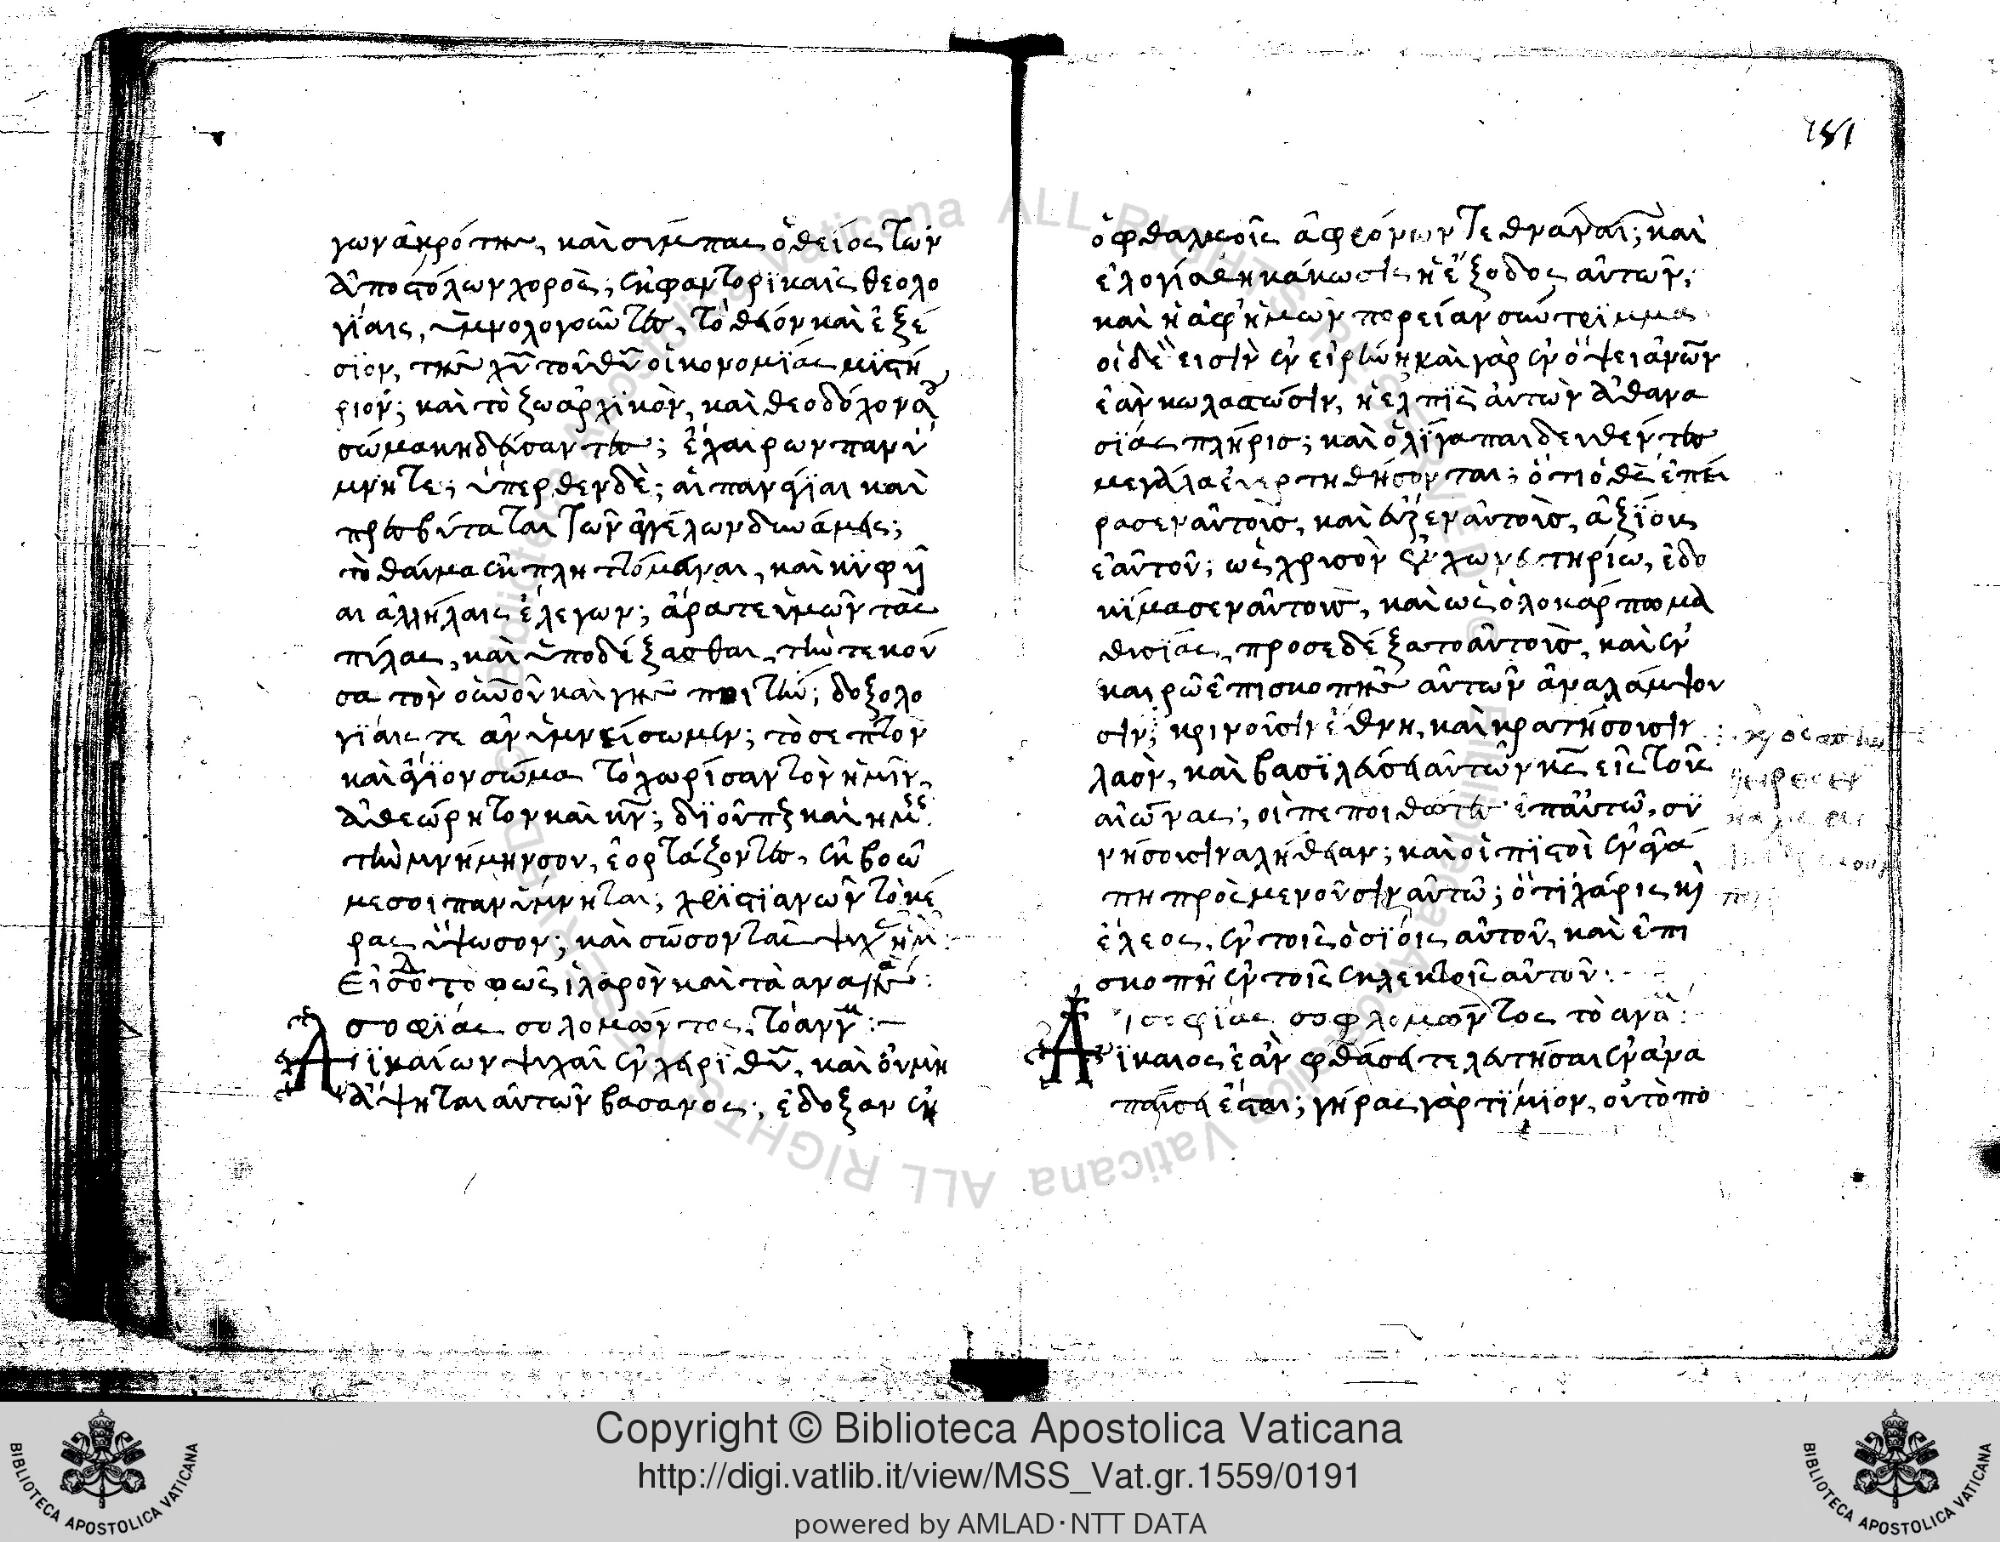 γων ἀκρότης, καὶ σύμπας ὁ θείος τῶν
Ἀποστόλων χορὸς; ἐκφαντορϊκαῖς θεολο
γίαις, ὑμνολογοῦντες, τὸ θεῖον καὶ ἐξέ
σϊον, τῆς χυ τοῦ θυ οἰκονομϊας μϊστή
ριον; καὶ τὸ ζωαρχϊκὸν, καὶ θεοδόχον
σώμα κηδεύσαντες; ἔχαιρων πανύ
μνητε; ὕπερθεν δὲ; αἱ παναγίαι καὶ
πρεσβύταται τῶν ἀγγέλων δυνάμεις;
τὸ θαύμα ἐκπληττόμεναι, καὶ κϋφῆ
αι ἀλλήλαις ἔλεγων; ἄρατε ὑμῶν τὰς
πύλας, καὶ ὑποδέξασθαι, τὴν τεκού
σα τὸν οὐνοῦ καὶ γῆς ποιτήν; δοξολο
γϊαις τε ἀνυμνείσωμεν; τὸ σεπτὸν
καὶ ἅγϊον σῶμα τὸ χωρίσαν τὸν ἡμῖν,
Ἀθεώρητον καὶ κν; δϊοῦπερ καὶ ἡμεῖς
τὴν μνήμην σου, ἑορτάζοντες, ἐκβοῶ
μεσοι πανύμνηται; χρϊστϊανῶν τὸ κέ
ρας ὕψωσον; καὶ σῶσον τὰς ψυχὰς ἡμῶν:
Εἴσοδ τὸ φῶς ἱλαρὸν καὶ τὰ αναγν:
σοφϊας σολομῶντος, τὸ αναγν:—
Δϊκαίων ψυχαὶ ἐν χειρϊ θυ, καὶ οὐ μὴ
ἅψηται αὐτῶν βασανος, ἔδοξαν ἐν
181
ὀφθαλμοῖς ἀφρόνων τεθνάναι; καὶ
ἐλογίσθη κάκωσις ἡ ἔξοδος αὐτῶν;
καὶ ἡ ἀφ' ἡμῶν πορείαν σύντρϊμμα
οἱ δὲ εισὶν ἐν εἰρήνη καὶ γὰρ ἐν ὄψει ἀνων
ἐὰν κωλασθῶσιν, ἡ ἐλπὶς ἀυτῶν Ἀθανα
σϊας πλήρις; καὶ ὀλϊγα παιδευθέντες
μεγάλα ἐυερτηθήσονται; ὅτι ὁ θς ἐπεί
ρασεν αὐτοὺς, καὶ εὗρεν αὐτοὺς, ἀξϊους
ἑαὐτοῦ; ὡς χρυσὸν ἐν χωνευτηρίω, ἐδο
κϊμασεν αὐτοὺς, καὶ ὡς ὁλοκάρπομα
θυσϊας, προσεδέξατο αὐτοὺς, καὶ ἐν
καιρῶ ἐπισκοπῆς αὐτῶν ἀναλάμψου
σιν; κρινοῦσιν ἔθνη, καὶ κρατήσουσιν
λαὸν, καὶ βασϊλεύσει αὐτῶν κς εἰς τοὺς
αἰῶνας; οἱ πεποιθῶτες ἐπ' αὐτῶ, συ
νήσουσιν αλήθειαν; καὶ οἱ πϊστοὶ ἐν ἀγά
πη πρὸς μενοῦσιν αὐτῶ; ὅτι χάρις κὶ
ἔλεος, ἐν τοῖς ὁσϊοις αὐτοῦ, καὶ ἐπι
σκοπὴ ἐν τοῖς ἐκλεκτοῖς αὐτοῦ:
σοφϊας σοφλομῶντος τὸ ανα:
Δϊκαιος ἐὰν φθάσει τελευτῆσαι ἐν ἀνα
παύσει ἔσται; γήρας γὰρ τϊμϊον, οὐ τὸ πο
Copyright © Biblioteca Apostolica Vaticana
http://digi.vatlib.it/view/MSS_Vat.gr.1559/0191
powered by AMLAD·NTT DATA
BIBLIOTECA APOSTOLICA VATICANA
BIBLIOTECA APOSTOLICA VATICANA